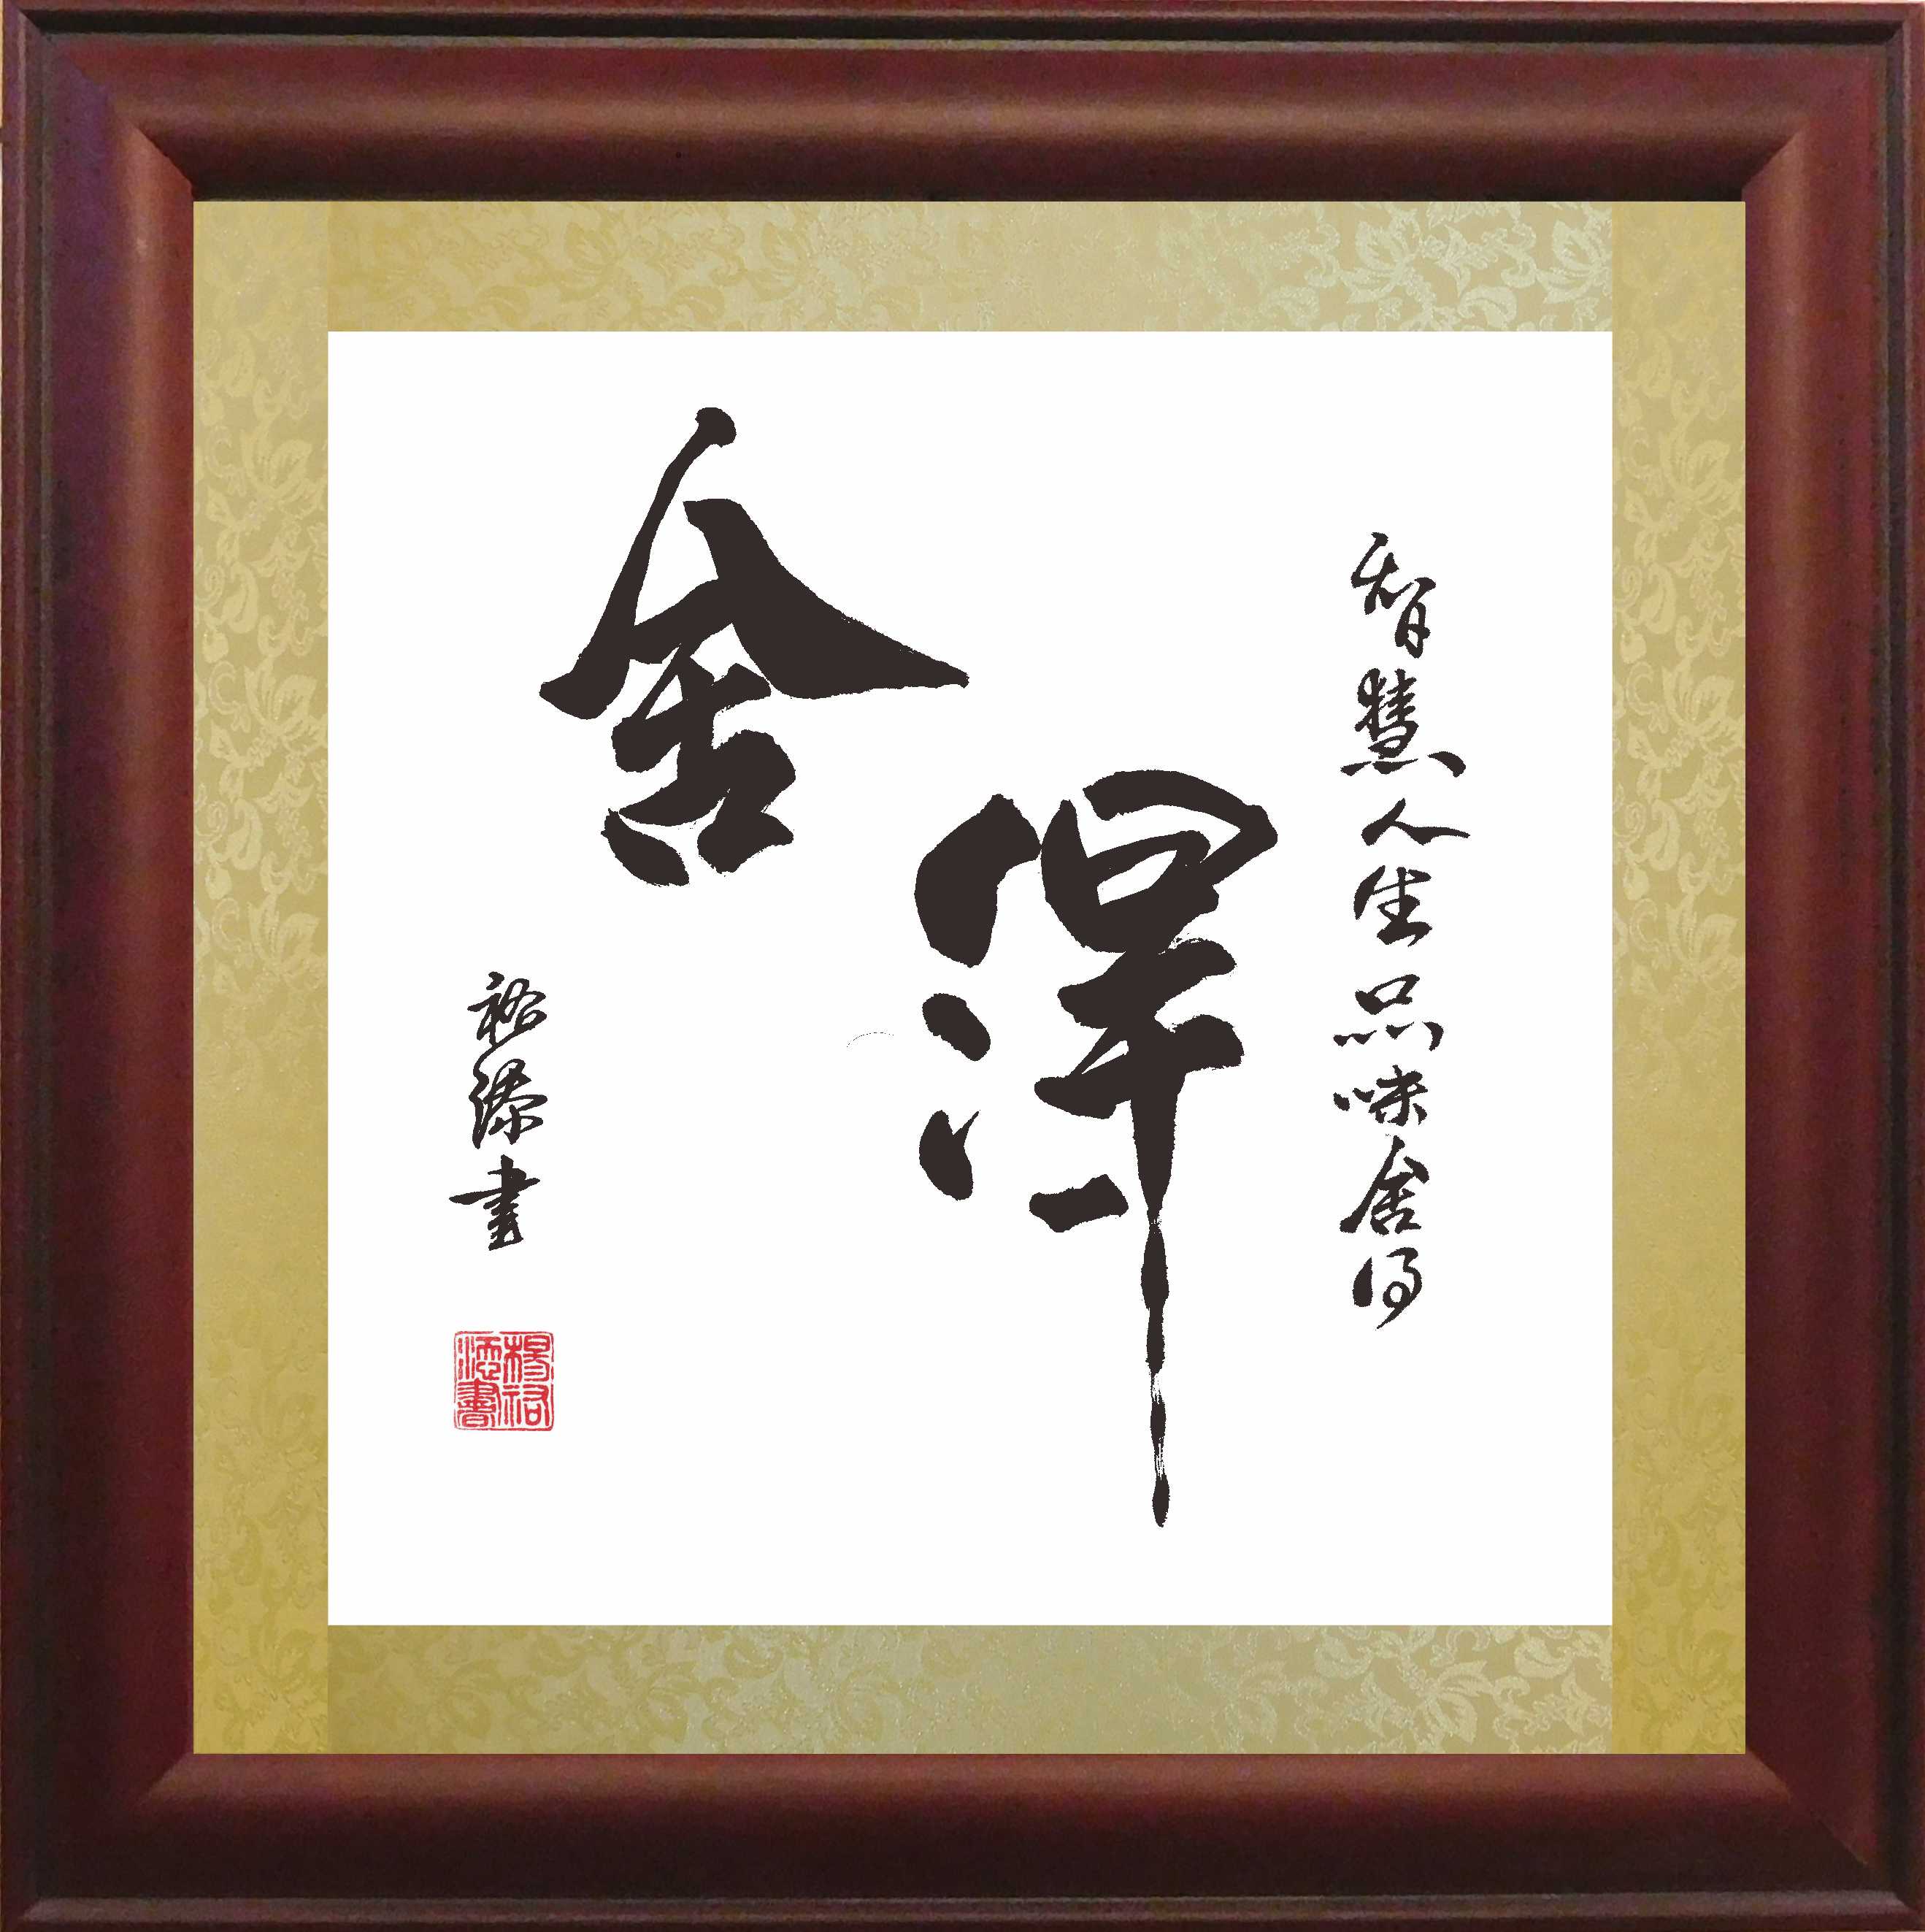 智慧人生品味舍得
舍得
裕添書
楊裕添書